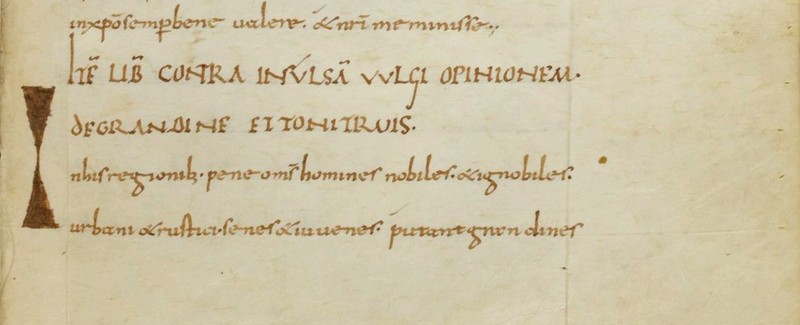 inxpō semper bene ualere. & nr̄i meminisse.,
INC̄P LIB̄ CONTRA INSVLSĀ VVLGI OPINIONEM.
DE GRANDINE ET TONITRVIS.
In his regionib; pene om̄s homines nobiles. & ignobiles.
urbani & rustici. senes & iuuenes. putant grandines